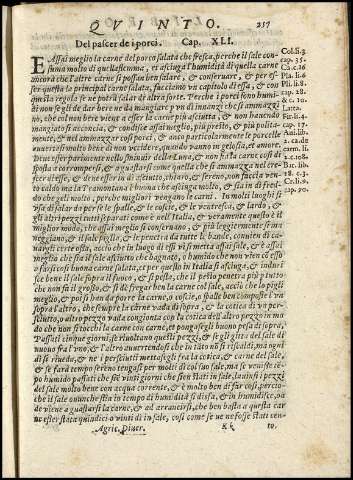 QVINTO. 257
Del pascer de i porci. Cap. XLI.
E Assai meglio la carne del porco salata che fresca, perche il sale con-
suma molto di quella flemma, et asciuga l'humidità di quella carne
ancora che l'altre carne si possan ben salare, & conseruare, & per es-
ser questa la principal carne salata, facciamo vn capitolo di essa, & con
questa regola se ne potrà salar di altra sorte. Perche i porci sono humi-
di non se gli dè dar bere ne da mangiare vn dì innanzi che si ammazzi
no, che cosi non bere viene a esser la carne più asciutta, & non hauendo
mangiato si acconcia, & condisce assai meglio, più presto, & più polita-
mente, & nel ammazzar essi porci, & anco particolarmente le porcelle
auuertiscasi a non le ammazzare, quando vanno in gelosia, et amore.
Deue esser parimente nello sminuir della Luna, & non ha tal carne cosi di
sposta a corrompersi, & a guastarsi come quella che si ammazza nel cre-
scer di esse, & deue esser in dì asciutto, chiaro, & sereno, non faccia ven-
to caldo ma la Tramontana è buona che asciuga molto, & sia in dì fred-
do che geli molto, perche migliori vengono le carni. In molti luoghi si
vsa di salar da per se le spalle, & le coste, & le ventresche, & lardo, &
gli altri pezzi tutti separati come è nell'Italia, & veramente questo è il
miglior modo, che assai meglio si conseruano, & più leggiermente si ma
neggiano, & il sale piglia, & le penetra da tutte le bande, conuien di ca-
uargli certe ossa, acciò che in luogo di essi vi si metta assai sale, & è assai
meglio che sia il sale asciutto che bagnato, & humido che non vien cosi esso
o fuori cosi buona carne salata, et per questo in Italia si asciuga, & induri
sce bene il sale sopra il fuoco, & si pesta, che il pesto penetra più p tutto
che non fa il grosso, & si dè fregar ben la carne col sale, acciò che lo pigli
meglio, & poi si han da porre la carne, o coscie, o spalle ben composte l'vn
sopra l'altro, che sempre la carne vada di sopra, & la cotica di vn per-
sciutto, o altro pezzo vada congionta con la cotica dell'altro pezzo in mo
do che non si tocchi la carne con carne, et pongasegli buono peso di sopra,
Passati cinque giorni, si riuoltano questi pezzi, & segli gitta del sale di
nuouo fra l'vno, & l'altro auuertendosi che in tal modo non si riscaldi, ma ogni
dì si riueda, & ne i persciutti mettasegli fra la cotica, & carne del sale,
& se farà tempo sereno tengasi per molti dì col suo sale, ma se venisse te-
po humido passati che sie vinti giorni che sien stati in sale, lauinsi i pezzi
del sale molto bene con acqua corrente, & è molto ben di far cosi, perciò-
che il sale ounque sta in tempo di humidità si disfa, & in humidisce, on
de viene a guastarsi la carne, & ad arrancirsi, che ben basta a questa car
ne esser stata quindici o vinti dì in sale, cosi come se ue ne fosse stati cen-
Agric. Diuer. Kk to.
Col. li. 3.
cap. 35.
Ca. c. 16
Pla. li. 6
Pli. li. 8.
cap. 28.
& c. 10.
Latta.
cap. 17.
Ani. lib.
2. ca. de
carn. li.
2. c. 108.
Bar. lib.
18. c. 3.
Cr. li. 9.
cap. 70.